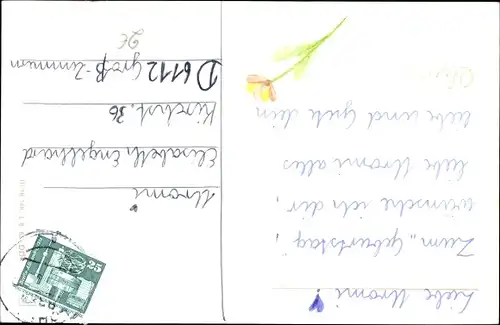 Liebe Uromi
Zum „Geburtstag",
wünsche ich dir,
liebe Uromi alles
liebe und Gute dein
Uromi
Elisabeth Engelhard
Kirchstr. 36
D 6112 Groß-Zimmern
2€
25